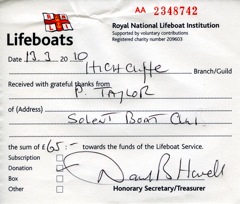 AA 2348742
Lifeboats
Royal National Lifeboat Institution
Supported by voluntary contributions
Registered charity number 209603
Date 13.3 2010 HIGHCLIFFE Branch/Guild
Received with grateful thanks from
P. TAYLOR
of (Address)
SOLENT BOAT
the sum of £65:- towards the funds of the Lifeboat Service.
Subscription
Donation
Box
Other
Honorary Secretary/Treasurer